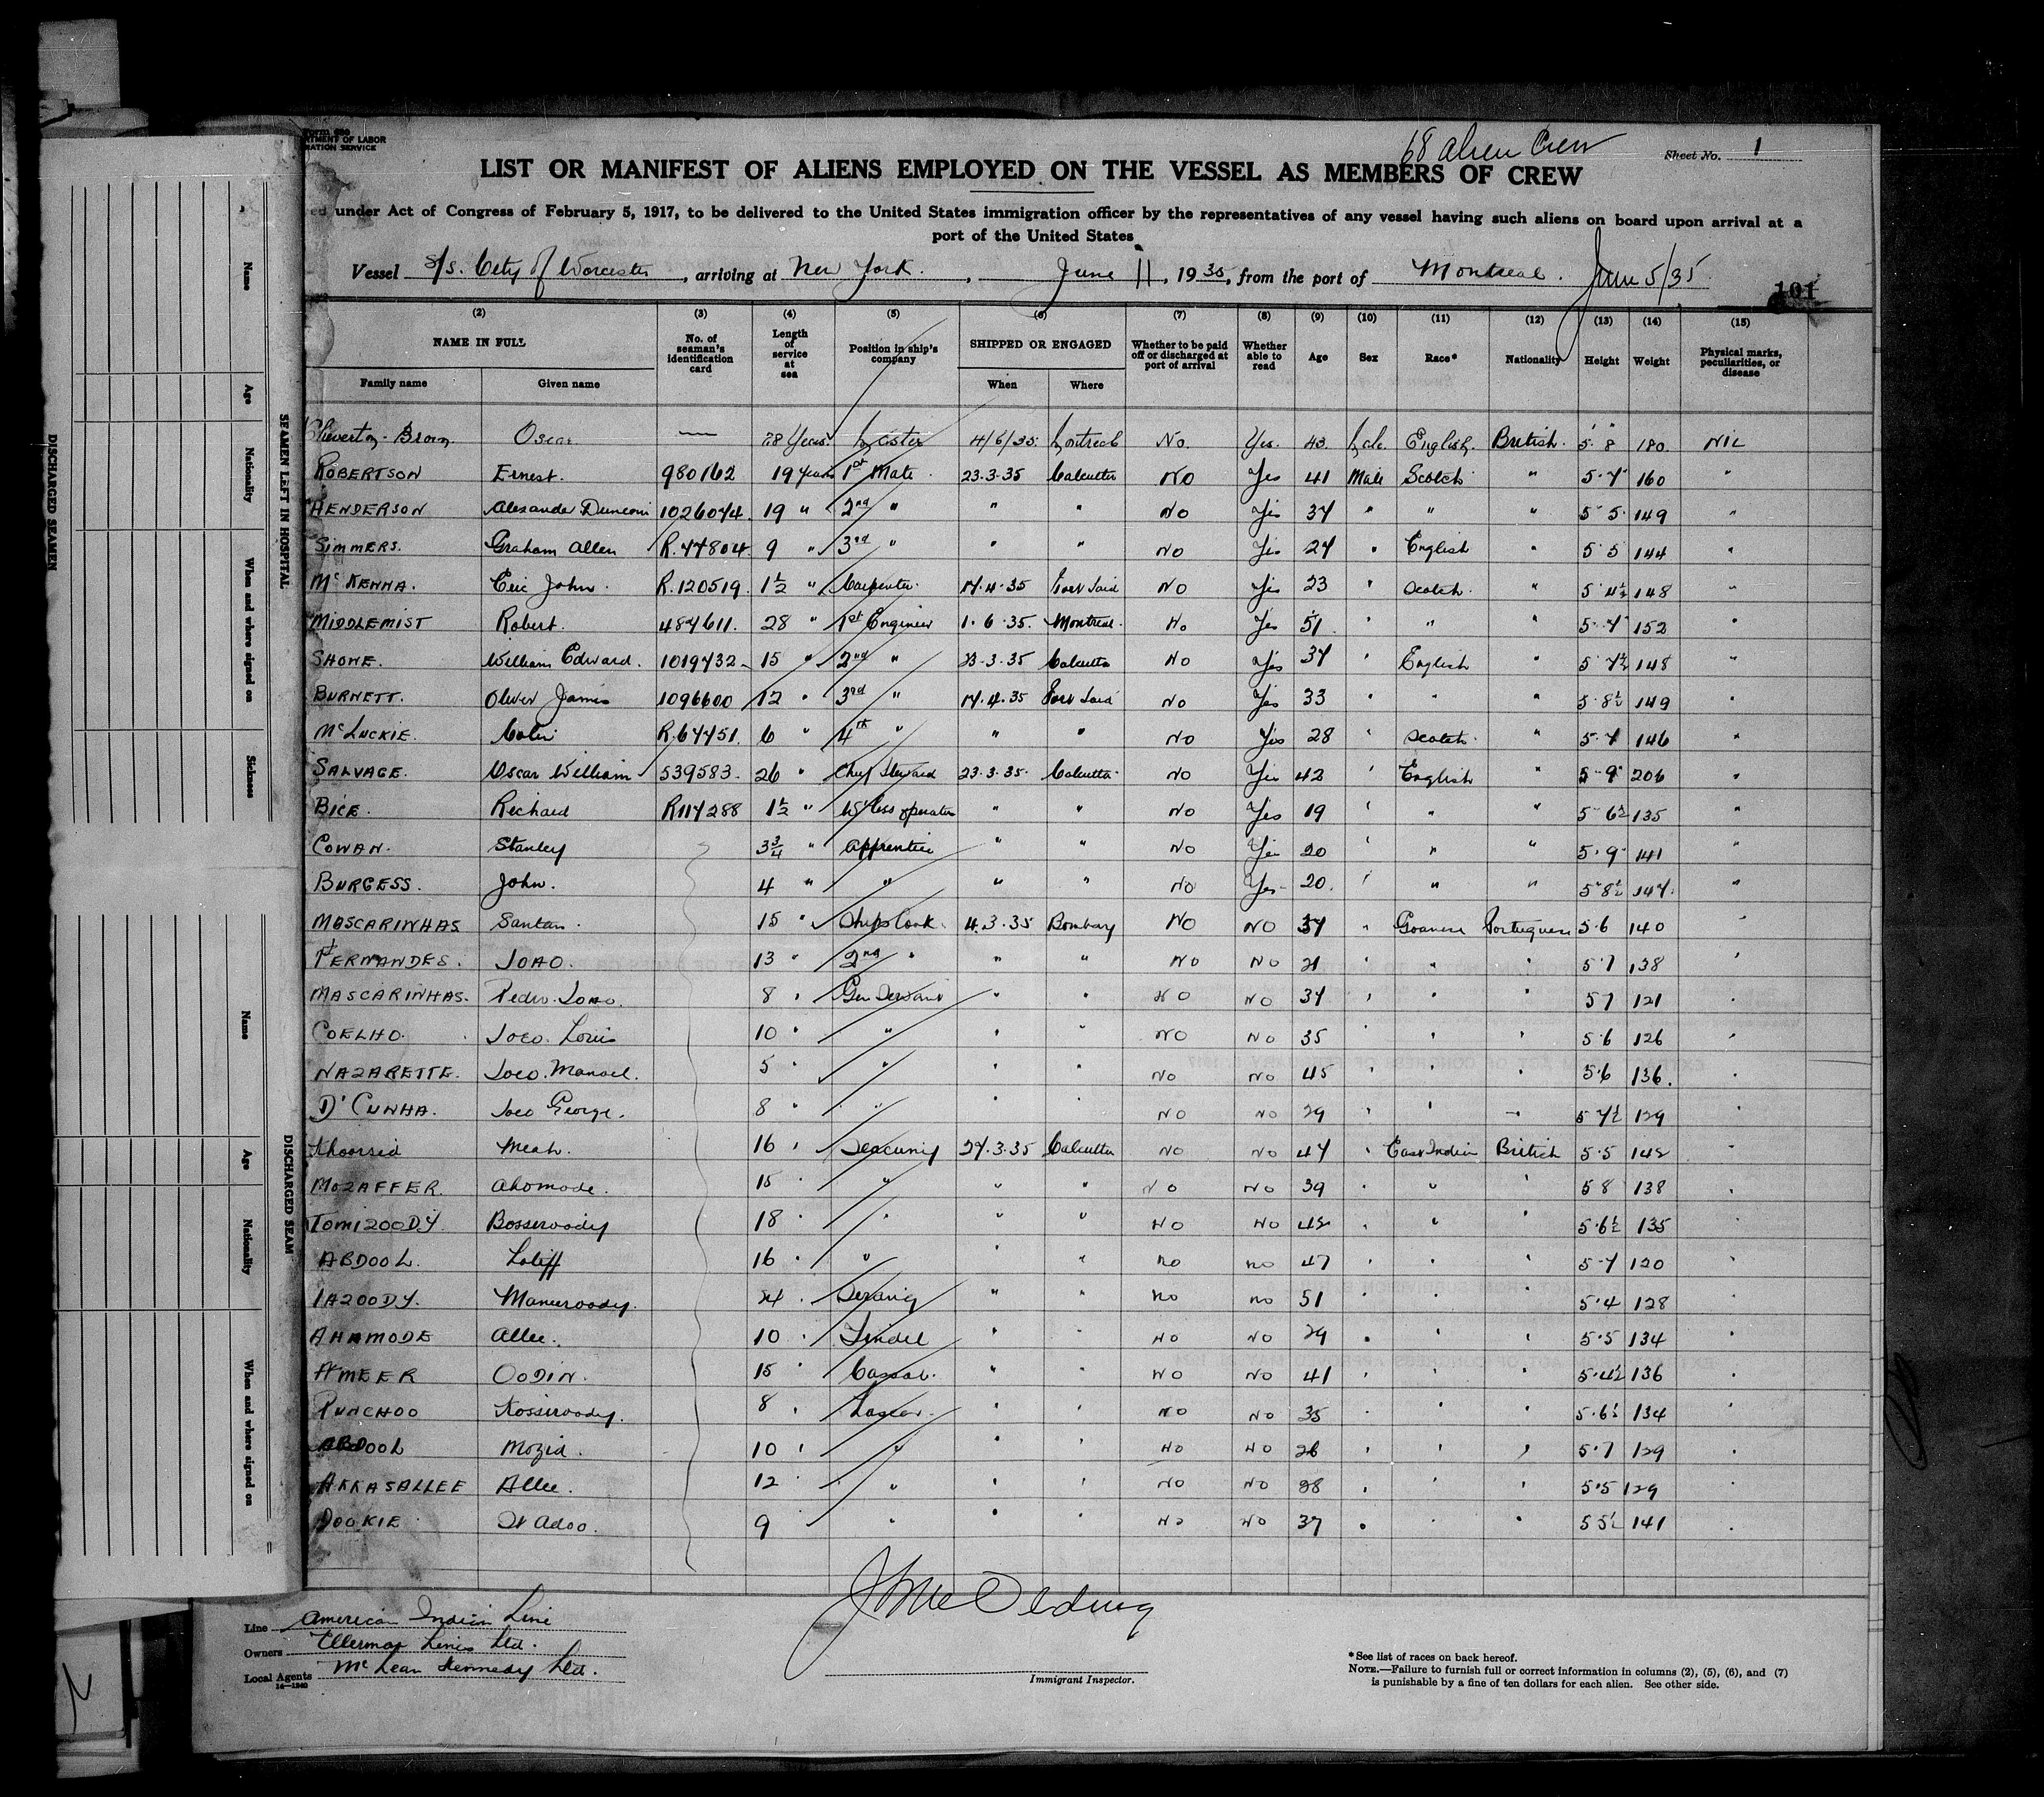 Form 689
DEPARTMENT OF LABOR
IMMIGRATION SERVICE
68 alien Crew
Sheet No. 1
LIST OR MANIFEST OF ALIENS EMPLOYED ON THE VESSEL AS MEMBERS OF CREW
under Act of Congress of February 5, 1917, to be delivered to the United States immigration officer by the representatives of any vessel having such aliens on board upon arrival at a
port of the United States
Vessel S/S. City of Worcester, arriving at New York., June 11, 1935, from the port of Montreal. June 5/35
101
(2) (3) (4) (5) (6) (7) (8) (9) (10) (11) (12) (13) (14) (15)
NAME IN FULL No. of seaman's identification card Length of service at sea Position in ship's company SHIPPED OR ENGAGED Whether to be paid off or discharged at port of arrival Whether able to read Age Sex Race* Nationality Height Weight Physical marks, peculiarities, or disease
Family name Given name When Where
Cheverton-Brown Oscar — 28 Years. Master 4/6/35 Montreal No. Yes. 43. Male English. British. 5' 8" 180. NIL
ROBERTSON Ernest. 980162 19 Years 1st Mate 23.3.35 Calcutta NO Yes 41 Male Scotch " 5.7 160 "
HENDERSON Alexander Duncan 1026074 19 " 2nd " " " NO Yes 37 " " " 5 5 149 "
SIMMERS. Graham Allen R.77804 9 " 3rd " " " NO Yes 27 " English " 5 5 144 "
McKENNA. Eric John. R.120519 1½ " Carpenter 17.4.35 Port Said NO Yes 23 " Scotch. " 5 4½ 148 "
MIDDLEMIST Robert. 487611. 28 " 1st Engineer 1.6.35. Montreal. No Yes 51 " " " 5.7 152 "
SHONE. William Edward. 1019732 15 " 2nd " 23.3.35 Calcutta NO Yes 37 " English " 5 7½ 148 "
BURNETT. Oliver James 1096600 12 " 3rd " 17.4.35 Port Said NO Yes 33 " " " 5.8½ 149 "
McLUCKIE. Colin R.67751. 6 " 4th " " " NO Yes 28 " Scotch. " 5.7 146 "
SALVAGE. Oscar William 539583. 26 " Chief Steward 23.3.35. Calcutta NO Yes 42 " English " 5 9 206 "
BICE. Richard R117288 1½ " W'less operator " " NO Yes 19 " " " 5 6½ 135 "
COWAN. Stanley 3¾ " Apprentice " " NO Yes 20 " " " 5.9 141 "
BURGESS. John. 4 " " " " NO Yes 20. " " " 5 8½ 147. "
MASCARINHAS Santan. 15 " Ships Cook. 4.3.35 Bombay NO NO 37 " Goanese Portuguese 5.6 140 "
FERNANDES. JOAO. 13 " 2nd " " " NO NO 21 " " " 5.7 138 "
MASCARINHAS. Pedro JOAO. 8 " Gen Servant " " NO NO 37 " " " 5 7 121 "
COELHO. Joao. Louis 10 " " " " NO NO 35 " " " 5.6 126 "
NAZARETTE. Joao. Manoel. 5 " " " " NO NO 45 " " " 5.6 136. "
D'CUNHA. Joao George. 8 " " " " NO NO 29 " " " 5 7½ 129 "
Khoorsed Meah. 16 " Seacunny 27.3.35 Calcutta NO NO 47 " East Indian British 5.5 142 "
MOZAFFER. Ahomode. 15 " " " " NO NO 39 " " " 5 8 138 "
TOMIZOODY. Bosseroody 18 " " " " NO NO 42 " " " 5.6½ 135 "
ABDOOL. Latiff 16 " " " " no no 47 " " " 5.7 120 "
IAZOODY. Muneeroody. 24 " Serang " " no no 51 " " " 5.4 128 "
AHAMODE Allee. 10 " Tindel " " NO NO 29 " " " 5.5 134 "
AMEER OODIN. 15 " Cassab. " " NO NO 41 " " " 5.4½ 136 "
PUNCHOO Kosseroody. 8 " Lascar. " " NO NO 35 " " " 5.6½ 134 "
ABDOOL Mozid. 10 " " " " NO NO 26 " " " 5.7 129 "
AKKASALLEE Allee. 12 " " " " NO NO 28 " " " 5.5 129 "
DOOKIE 9 " " " " NO NO 37 " " " 5 5½ 141 "
Line American Indian Line
Owners Ellerman Lines Ltd.
Local Agents McLean Kennedy Ltd.
14—1240
Immigrant Inspector.
*See list of races on back hereof.
NOTE.—Failure to furnish full or correct information in columns (2), (5), (6), and (7)
is punishable by a fine of ten dollars for each alien. See other side.
DISCHARGED SEAMEN
SEAMEN LEFT IN HOSPITAL
Name
Age
Nationality
When and where signed on
Sickness
DISCHARGED SEAM
Name
Age
Nationality
When and where signed on